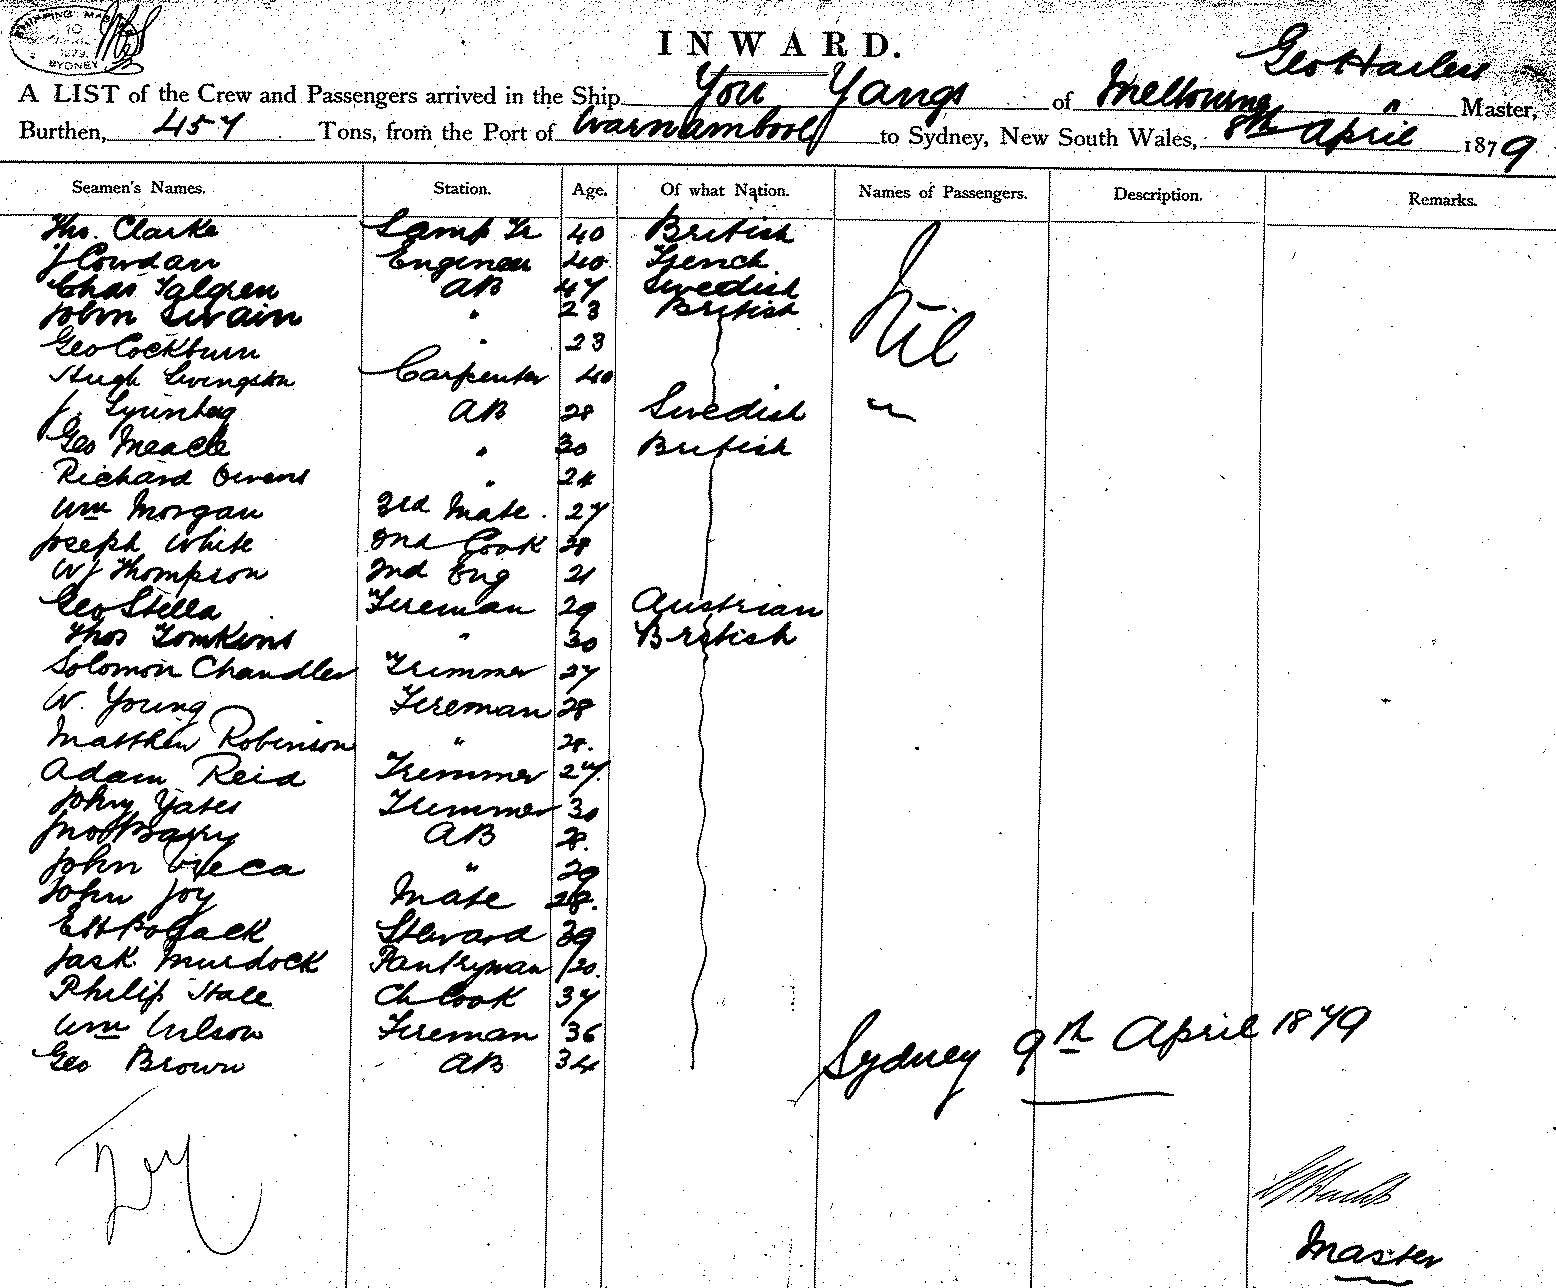 SHIPPING MASTER
10
1879
SYDNEY
INWARD.
Geo Harless
A LIST of the Crew and Passengers arrived in the Ship You Yangs of Melbourne " Master,
Burthen, 457 Tons, from the Port of Warnambool to Sydney, New South Wales, 8th April 1879
Seamen's Names. Station. Age. Of what Nation. Names of Passengers. Description. Remarks.
Thos. Clarke Lamp Tr 40 British Nil
J Cowdan Engineer 40 French
Chas Falgren AB 47 Swedish
John Swain " 23 British
Geo Cockburn " 23
Hugh Livingston Carpenter 40
J. AB 28 Swedish
Geo Meacle " 30 British
Richard Owens " 24
Wm Morgan 3rd Mate. 27
Joseph White 2nd Cook 28
WJ Thompson 2nd Eng 21
Geo Stella Fireman 29 Austrian
Thos Tomkins " 30 British
Solomon Chandler Trimmer 27
W. Young Fireman 28
Matthew Robinson " 28.
Adam Reid Trimmer 27.
John Yates Trimmer 30
Jno Barry AB 28.
John Vieca " 29
John Joy Mate 28.
EH Pollack Steward 39
Jack Murdock Pantryman 20.
Philip Hale Ch Cook 37
Wm Wilson Fireman 36
Geo Brown AB 34
Sydney 9th April 1879
Master